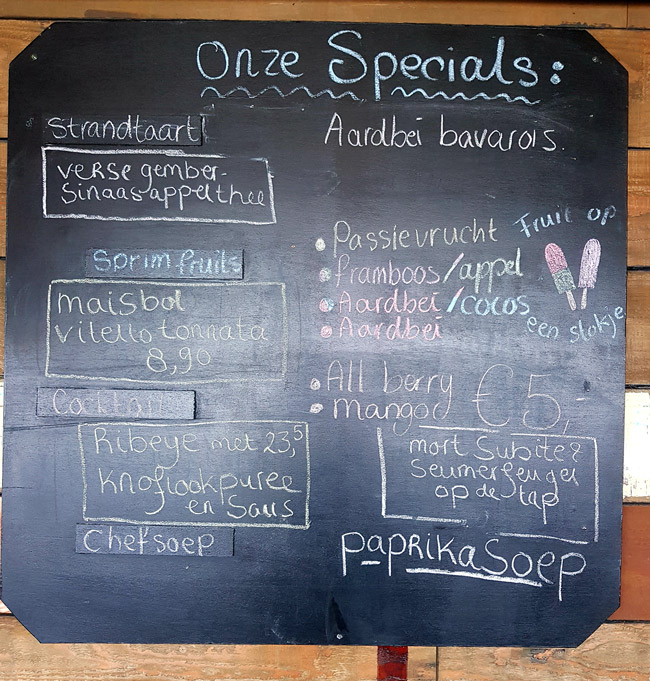 Onze Specials:
Strandtaart
Aardbei bavarois.
verse gember-
Sinaasappelthee
Sprim fruits
Passievrucht
framboos/appel
Aardbei/cocos
Aardbei
Fruit op
een stokje
maisbol
vitello tonnata
8,90
Cocktail
All berry
mango
€5,-
Ribeye met 23,5
Knoflookpuree
en Saus
mort Subite &
op de tap
Chefsoep
paprikasoep